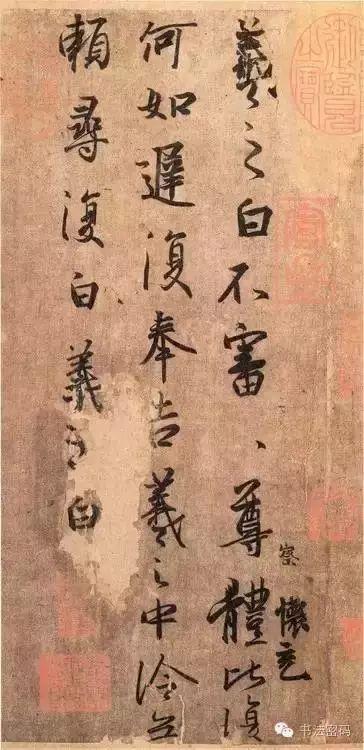 羲之白不審、尊體比復
察
懷充
何如遲復奉告羲之中冷無
賴尋復白羲之白
书法密码